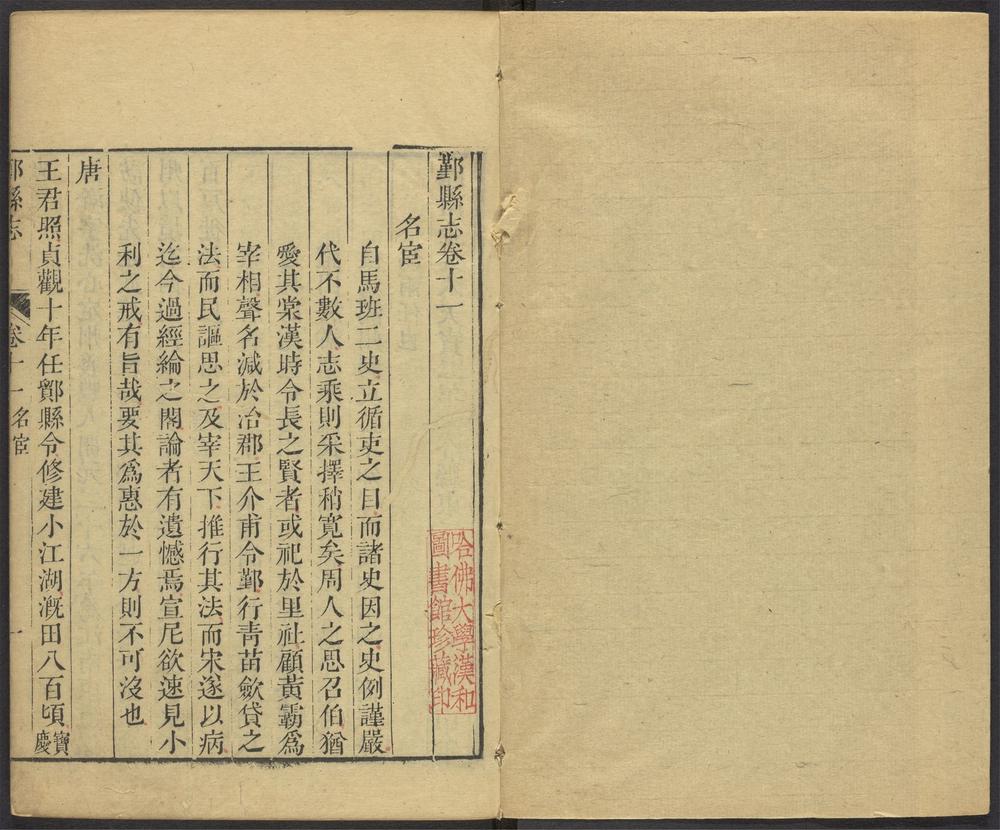 鄞縣志卷十一
名宦
自馬班二史立循吏之目而諸史因之史例謹嚴
代不數人志乘則采擇稍寬矣周人之思召伯猶
愛其棠漢時令長之賢者或祀於里社顧黃霸爲
宰相聲名減於治郡王介甫令鄞行青苗斂貸之
法而民謳思之及宰天下推行其法而宋遂以病
迄今過經綸之閣論者有遺憾焉宣尼欲速見小
利之戒有旨哉要其爲惠於一方則不可沒也
唐
王君照貞觀十年任鄮縣令修建小江湖漑田八百頃寶慶
鄞縣志 卷十一 名宦 一
哈佛大學漢和
圖書館珍藏印